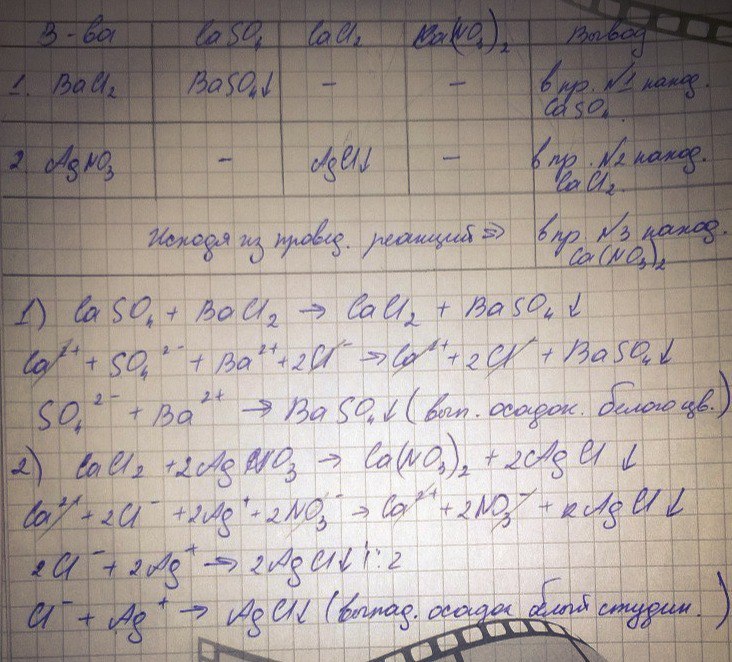 В-ва CaSO₄ CaCl₂ Ca(NO₃)₂ Вывод
1. BaCl₂ BaSO₄↓ – – в пр. №1 наход. CaSO₄
2. AgNO₃ – AgCl↓ – в пр. №2 наход. CaCl₂
Исходя из провед. реакций ⇒ в пр. №3 наход. Ca(NO₃)₂
1) CaSO₄ + BaCl₂ → CaCl₂ + BaSO₄↓
Ca²⁺ + SO₄²⁻ + Ba²⁺ + 2Cl⁻ → Ca²⁺ + 2Cl⁻ + BaSO₄↓
SO₄²⁻ + Ba²⁺ → BaSO₄↓ (вып. осадок. белого цв.)
2) CaCl₂ + 2AgNO₃ → Ca(NO₃)₂ + 2AgCl↓
Ca²⁺ + 2Cl⁻ + 2Ag⁺ + 2NO₃⁻ → Ca²⁺ + 2NO₃⁻ + 2AgCl↓
2Cl⁻ + 2Ag⁺ → 2AgCl↓ | : 2
Cl⁻ + Ag⁺ → AgCl↓ (выпад. осадок белый студен.)